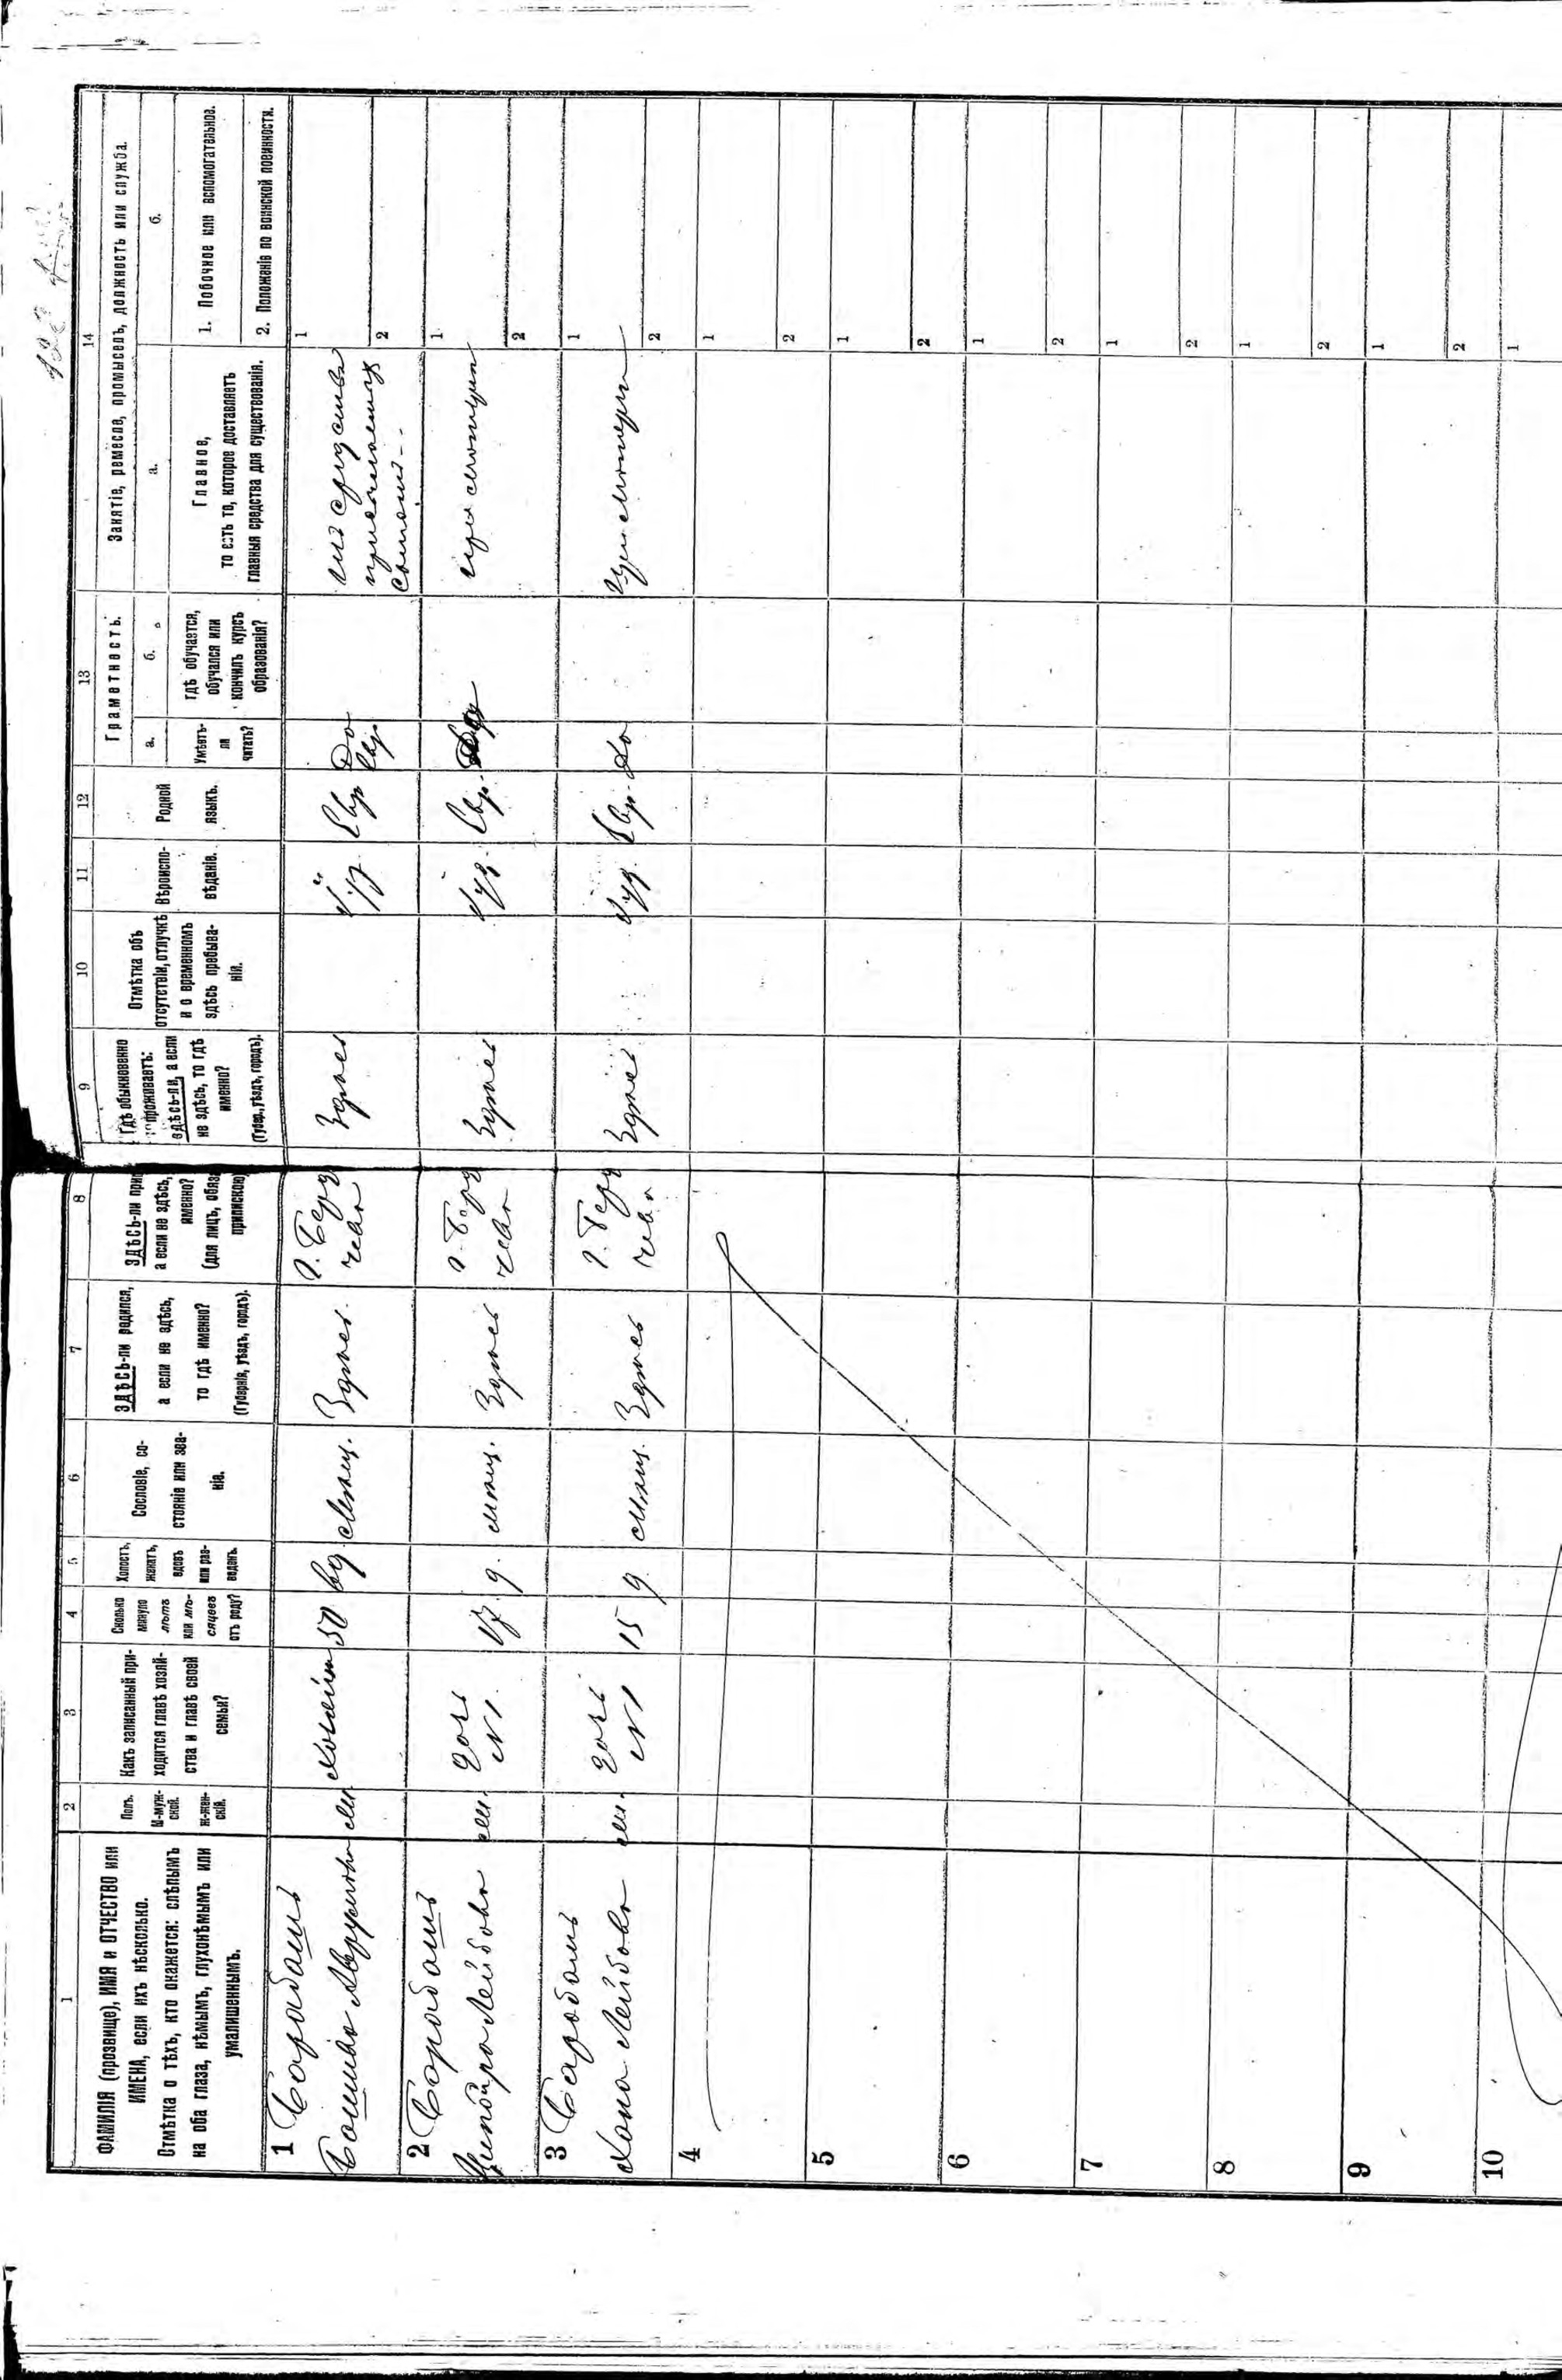 1
ФАМИЛІЯ (прозвище), ИМЯ и ОТЧЕСТВО или
ИМЕНА, если ихъ нѣсколько.
Отмѣтка о тѣхъ, кто окажется: слѣпымъ
на оба глаза, нѣмымъ, глухонѣмымъ или
умалишеннымъ.
2
Полъ.
М-муж-
ской.
Ж-жен-
скій.
3
Какъ записанный при-
ходится главѣ хозяй-
ства и главѣ своей
семьи?
4
Сколько
минуло
лѣтъ
или мѣ-
сяцевъ
отъ роду?
5
Холостъ,
женатъ,
вдовъ
или раз-
веденъ.
6
Сословіе, со-
стояніе или зва-
ніе.
7
ЗДѢСЬ-ли родился,
а если не здѣсь,
то гдѣ именно?
(Губернія, уѣздъ, городъ).
8
ЗДѢСЬ-ли прип
а если не здѣсь,
именно?
(для лицъ, обяза
припискою)
9
Гдѣ обыкновенно
проживаетъ:
здѣсь-ли, а если
не здѣсь, то гдѣ
именно?
(Губер., уѣздъ, городъ).
10
Отмѣтка объ
отсутствіи, отлучкѣ
и о временномъ
здѣсь пребыва-
ніи.
11
Вѣроиспо-
вѣданіе.
12
Родной
языкъ.
13
Грамотность.
а.
Умѣетъ-
ли
читать?
б.
гдѣ обучается,
обучался или
кончилъ курсъ
образованія?
14
Занятіе, ремесло, промыселъ, должность или служба.
а.
Главное,
то есть то, которое доставляетъ
главныя средства для существованія.
б.
1. Побочное или вспомогательное.
2. Положеніе по воинской повинности.
1 Барабашъ
Авруимова
50
вд
мѣщ.
Здѣсь
г. Берди
чевъ
Здѣсь
Іуд
Евр
Да
Евр
1
2
2 Барабашъ
Лейбова
дочь
№1
17
д.
мѣщ.
Здѣсь
г. Берди
чевъ
Здѣсь
Іуд.
Евр.
при матери
1
2
3 Барабашъ
Хана Лейбова
дочь
№1
15
д.
мѣщ.
Здѣсь
г. Берди
чевъ
Здѣсь
Іуд.
Евр.
Да
при матери
1
2
4
1
2
5
1
2
6
1
2
7
1
2
8
1
2
9
1
2
10
1